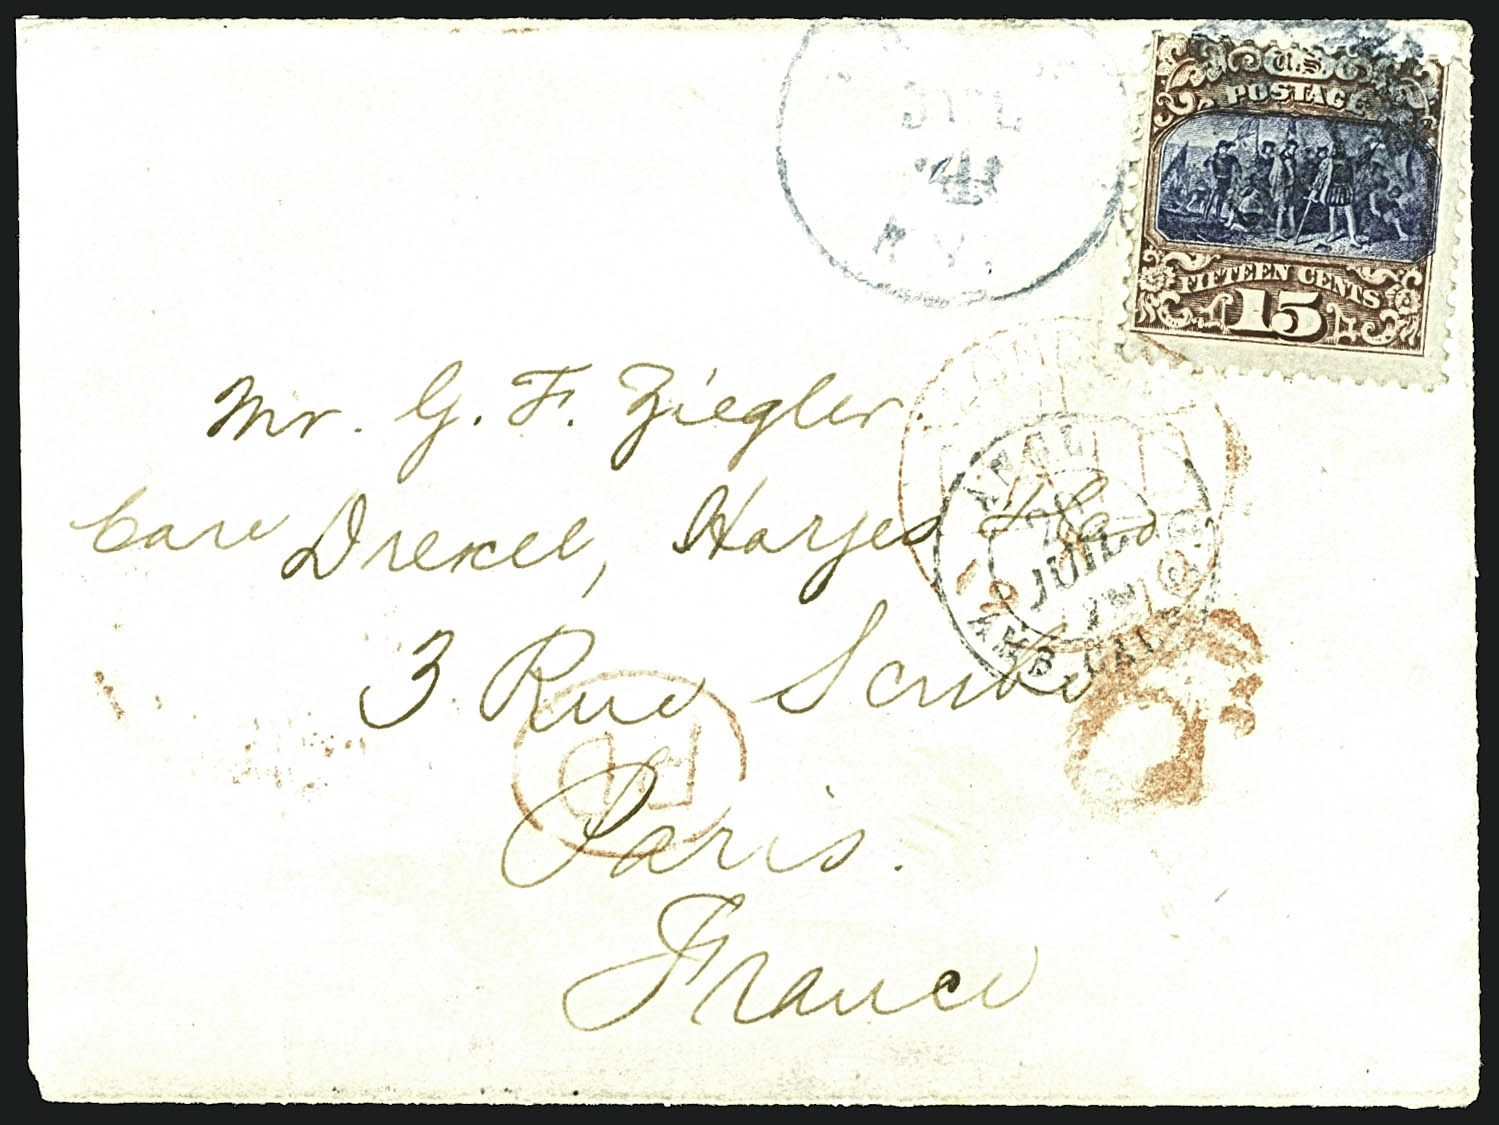 U.S.
POSTAGE
FIFTEEN CENTS
15
JUL
N.Y.
Mr. G. F. Ziegler.
Care Drexel, Harjes & Co
3 Rue Scribe
Paris.
France
ANGL.
JUIL
AMB. CAL
PD